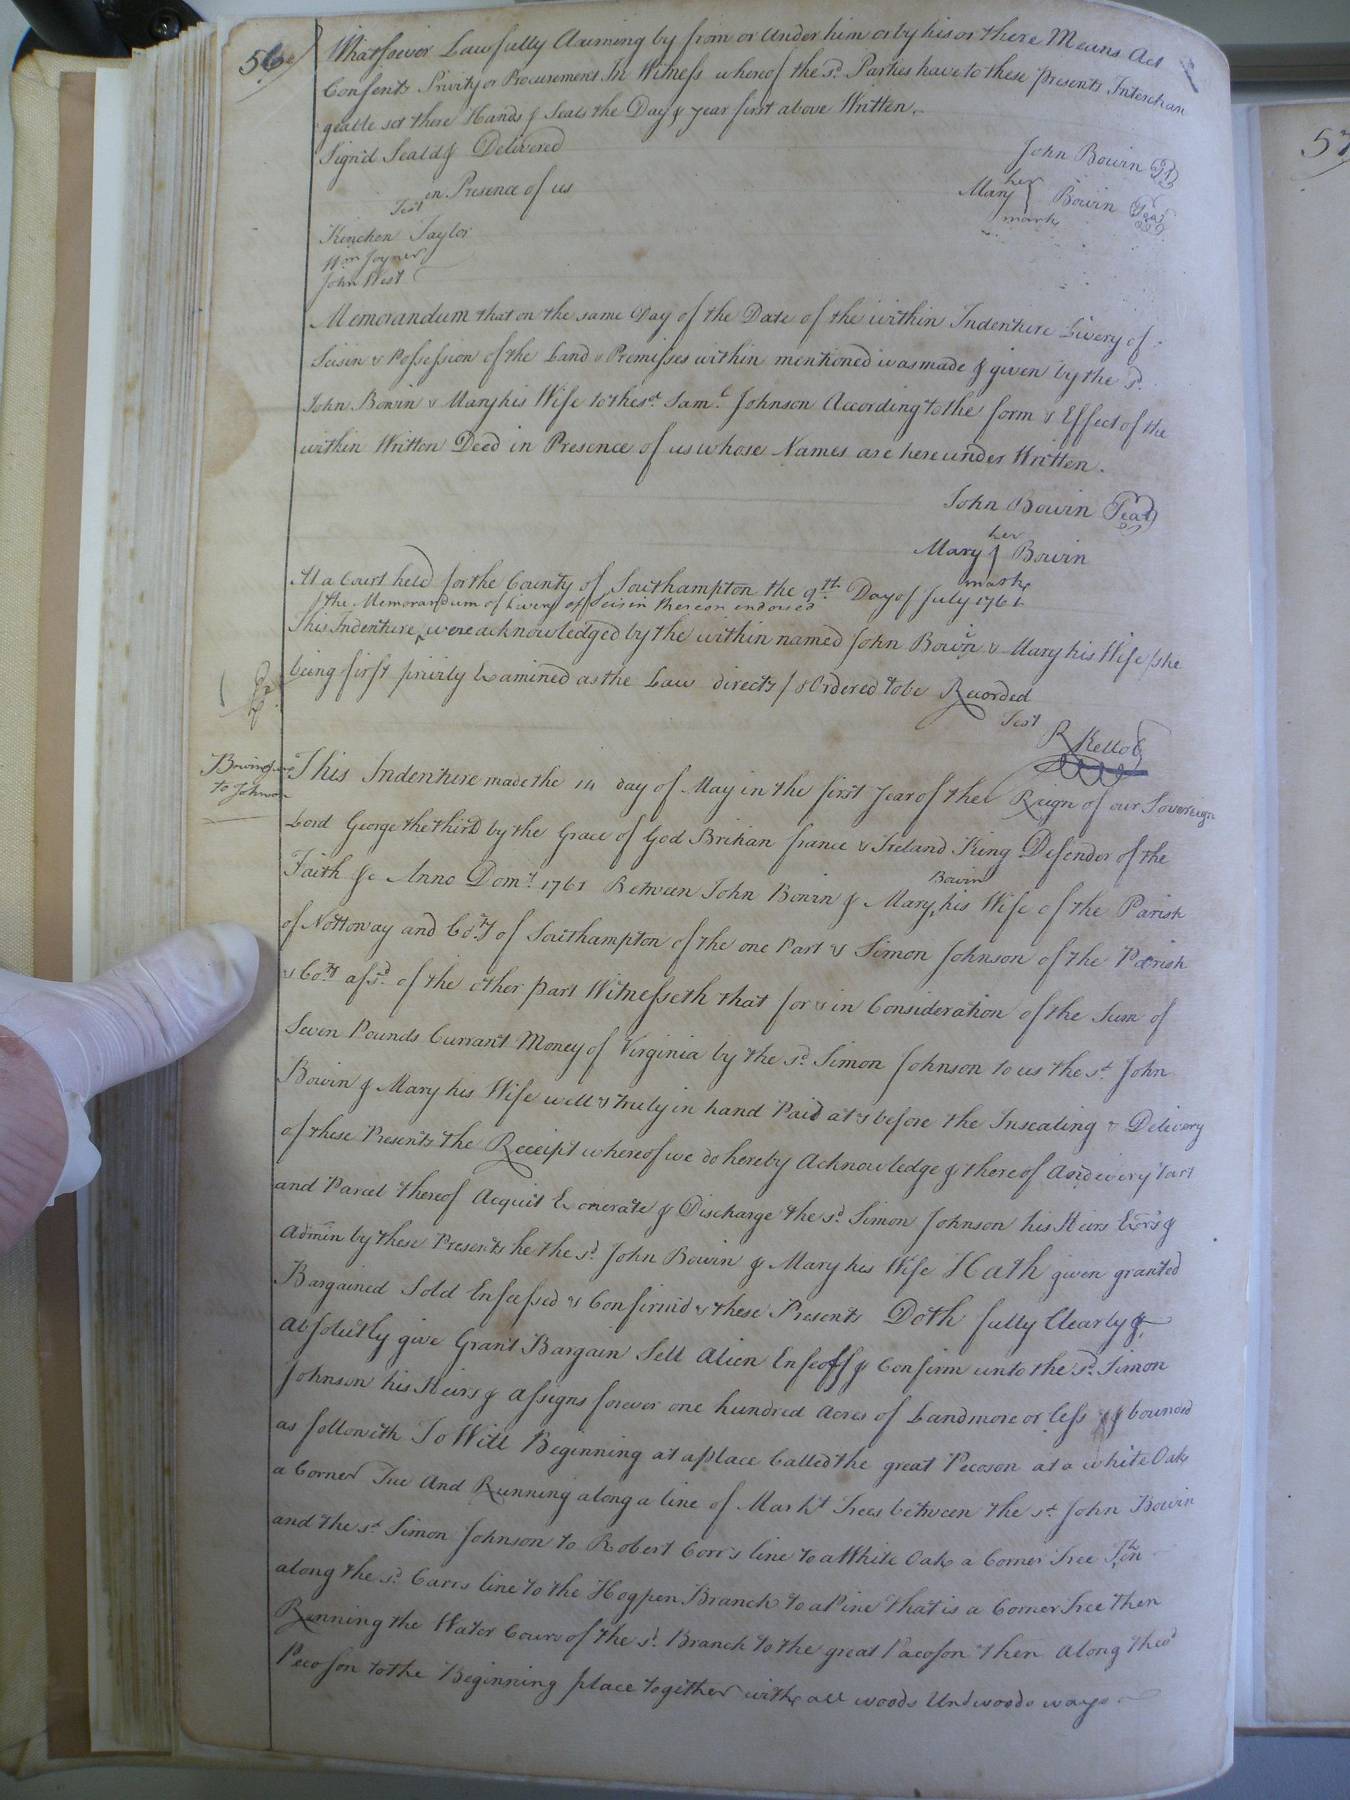 56
Whatsoever Lawfully Claiming by from or under him or by his or there Means Act
Consent Privity or Procurement In Witness whereof the sd. Parties have to these presents Interchan
geable set there Hands & Seals the Day & year first above Written.
Sign'd Seald & Delivered
John Bowin
in Presence of us
her
Mary Bowin
mark
Test
Kinchen Taylor
Wm Joyner
John West
Memorandum that on the same Day of the Date of the within Indenture Livery of
Seisin & Possession of the Land & Premisses within mentioned was made & given by the sd.
John Bowin & Mary his Wife to the sd. Saml. Johnson According to the form & Effect of the
within Written Deed in Presence of us whose Names are hereunder Written.
John Bowin Seal
her
Mary Bowin
mark
At a Court held for the County of Southampton the 9th. Day of July 1761
& the Memorandum of Livery of Seisin thereon endorsed
This Indenture were acknowledged by the within named John Bowin & Mary his Wife she
being first privily Examined as the Law directs & Ordered to be Recorded
Test
R Kello
Bowin
to Johnson
This Indenture made the 14 day of May in the first Year of the Reign of our Sovereign
Lord George the third by the Grace of God Brittan france & Ireland King Defender of the
Faith &c Anno Domi. 1761 Between John Bowin & Mary Bowin his Wife of the Parish
of Nottoway and Coty of Southampton of the one Part & Simon Johnson of the Parish
& Coty afsd. of the other part Witnesseth that for & in Consideration of the Sum of
Seven Pounds Currant Money of Virginia by the sd. Simon Johnson to us the sd. John
Bowin & Mary his Wife well & truly in hand Paid at & before the Insealing & Delivery
of these Presents the Receipt whereof we do hereby Acknowledge & thereof And every Part
and Parcel thereof Acquit Exonerate & Discharge the sd. Simon Johnson his Heirs Exrs &
Admin by these Presents he the sd. John Bowin & Mary his Wife Hath given granted
Bargained Sold Enfeefsed & Confirmid & these Presents Doth fully Clearly &
absolutly give Grant Bargain Sell Alien Enfeoff & Confirm unto the sd. Simon
Johnson his Heirs & assigns forever one hundred Acres of Land more or less & bounded
as followith To Witt Beginning at a place Called the great Pecoson at a white Oak
a Corner Tree And Running along a line of Markt Trees between the sd John Bowin
and the sd Simon Johnson to Robert Carr's line to a White Oak a Corner Tree
along the sd. Carrs line to the Hogpen Branch to a Pine that is a Corner Tree then
Running the Water Course of the sd. Branch to the great Pacoson then along the sd
Pecoson to the Beginning place together with all woods Undwoods ways
57